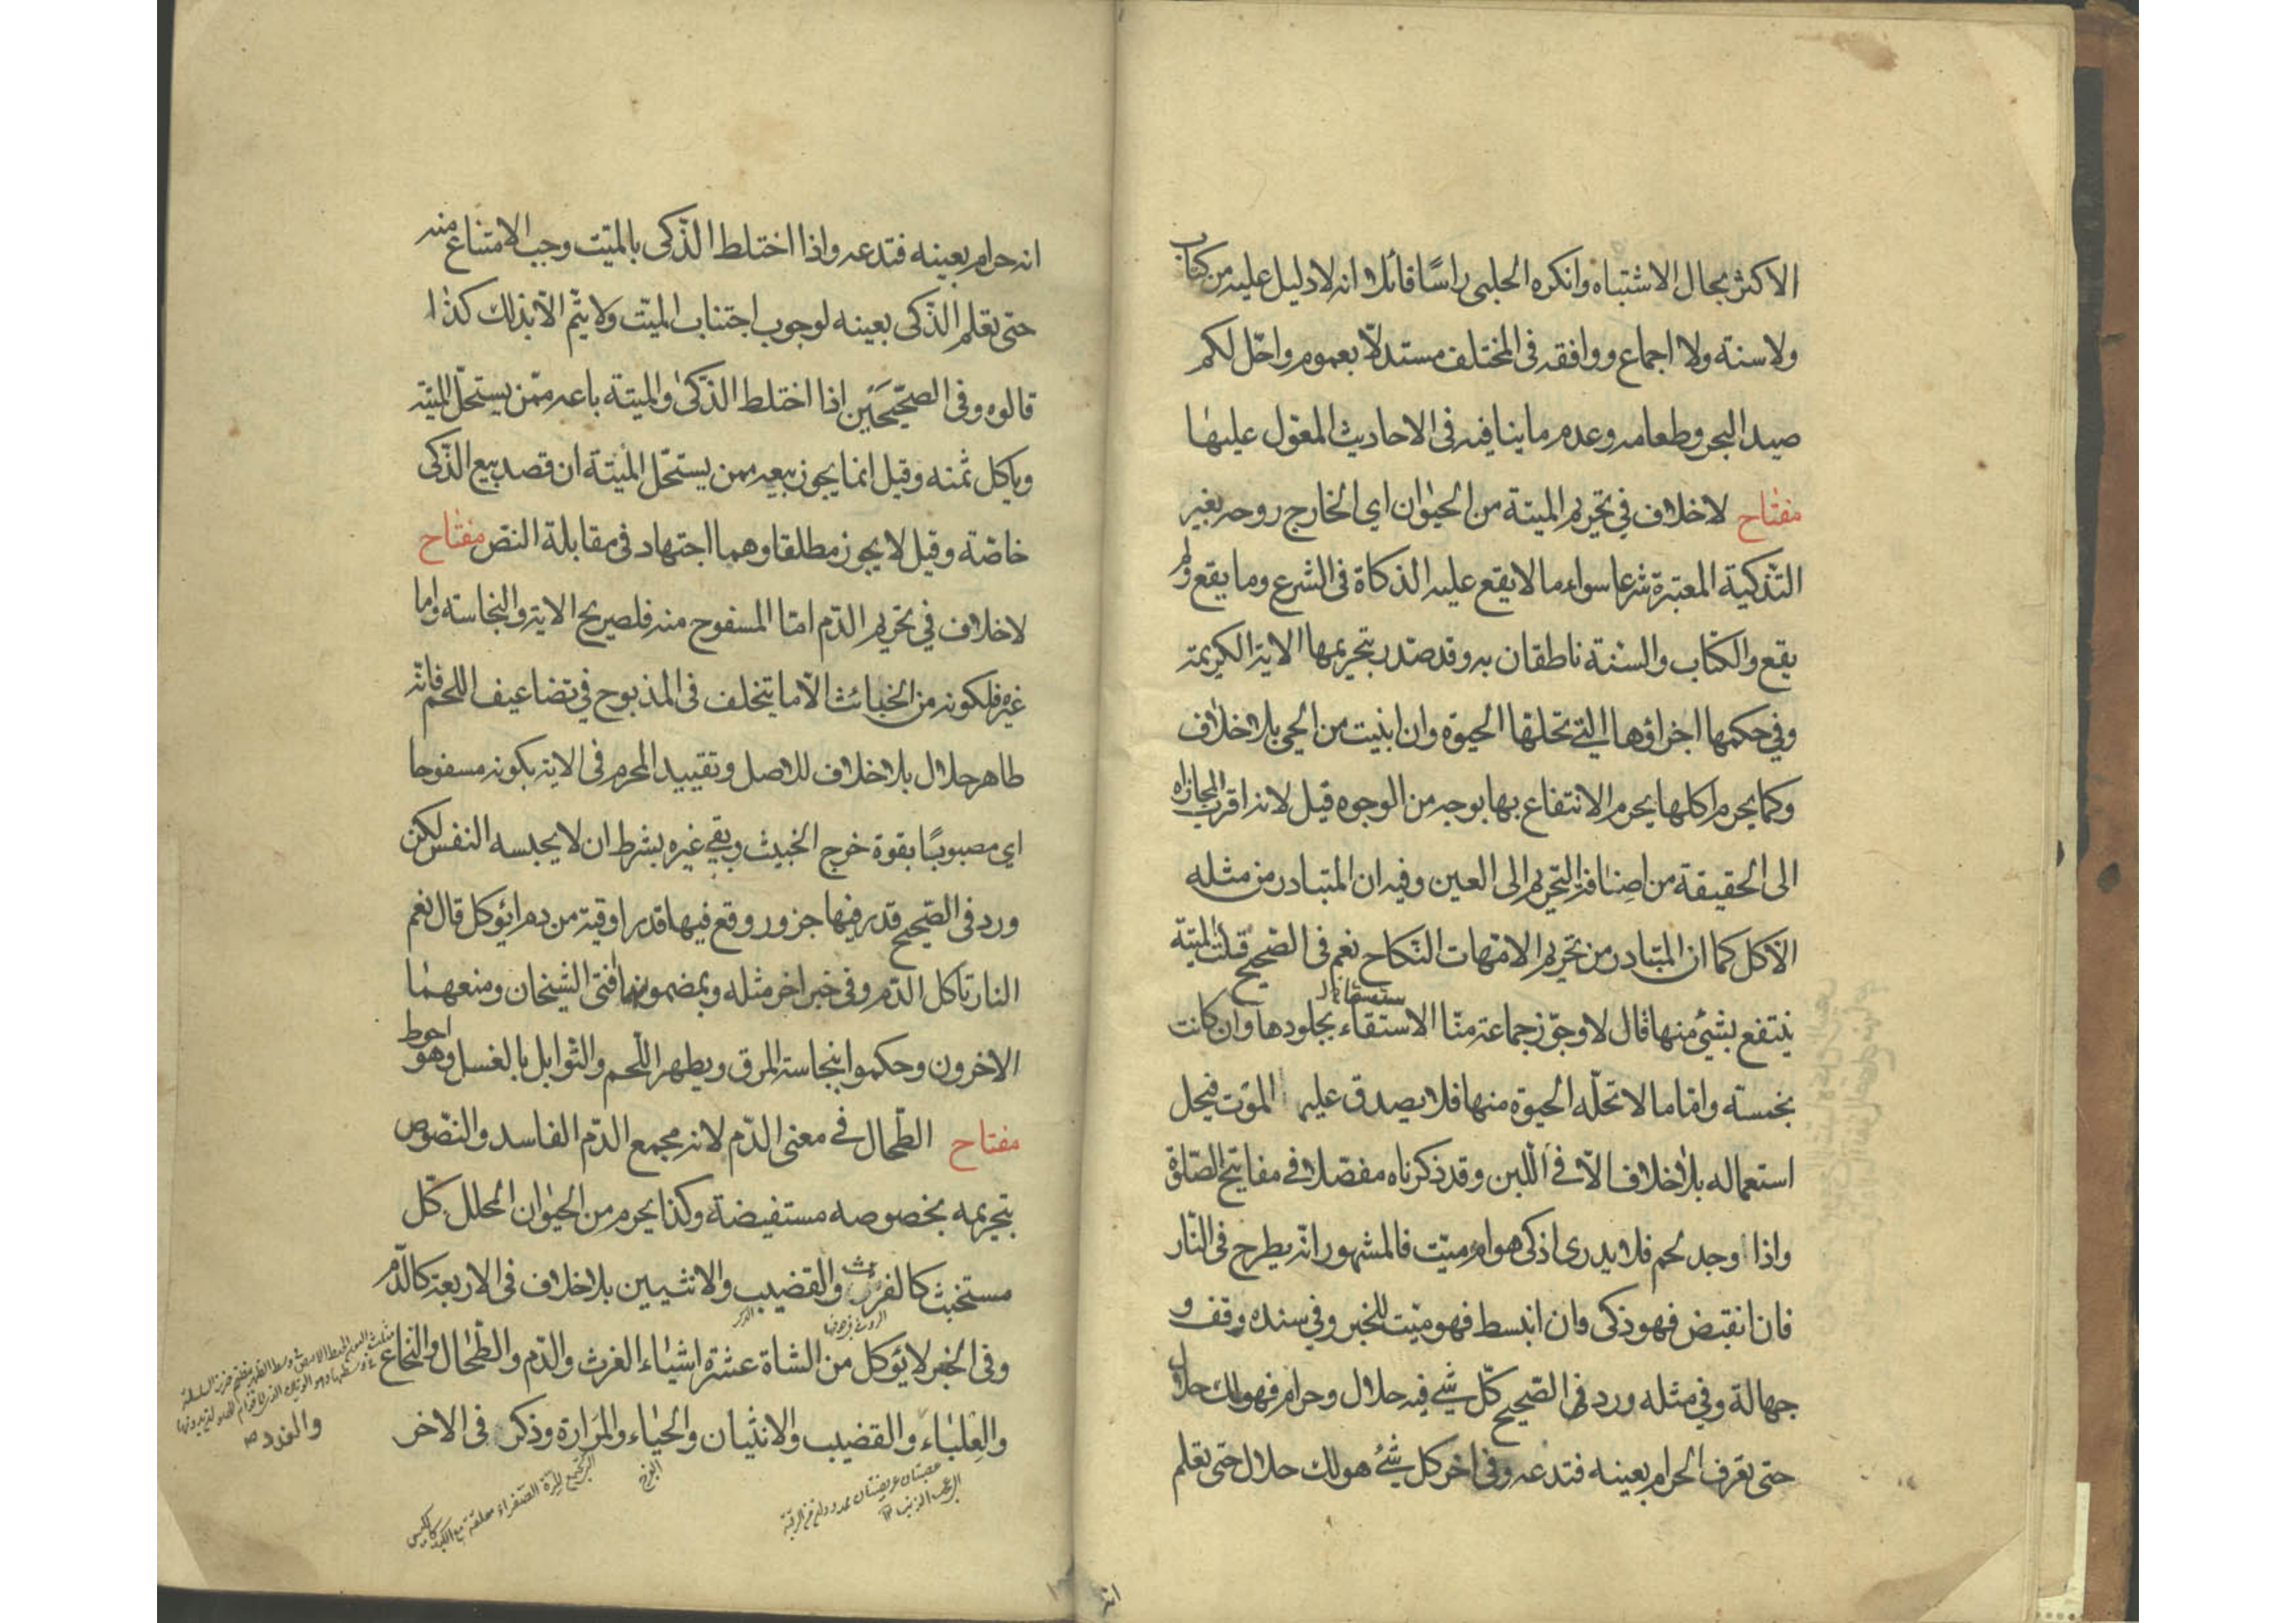 الاكثر بحال الاشتباه وانكره الحلبى راسًا قائلا انه لا دليل عليه من كتاب
ولا سنة ولا اجماع ووافقه فى المختلف مستدلّا بعموم واحلّ لكم
صيد البحر وطعامه وعدم ما ينافيه فى الاحاديث المعوّل عليها
مفتاح لا خلاف في تحريم الميتة من الحيوان اي الخارج روحه بغير
التذكية المعتبرة شرعا سواء ما لا يقع عليه الذكاة فى الشرع وما يقع ولم
يقع والكتاب والسنة ناطقان به وقد صدر بتحريمها الاية الكريمة
وفي حكمها اجزاؤها التي تحلّها الحيوة وان ابنيت من الحي بلا خلاف
وكما يحرم اكلها يحرم الانتفاع بها بوجه من الوجوه قيل لانه اقرب المجازاة
الى الحقيقة من اضافة التحريم الى العين وفيه ان المتبادر من مثله
الاكل كما ان المتبادر من تحريم الامهات النكاح نعم فى الصحيح قلت الميتة
ينتفع بشيء منها قال لا وجوّز جماعة منّا الاستقاء بجلودها وان كانت
نجسته وامّا ما لا تحلّه الحيوة منها فلا يصدق عليه الموت فيحل
استعماله بلا خلاف الّا في اللبن وقد ذكرناه مفصّلا في مفاتيح الصّلوة
واذا وجد لحم فلا يدرى اذكى هو ام ميّت فالمشهور انّه يطرح فى النّار
فان انقبض فهو ذكى وان انبسط فهو ميّت للخبر وفي سنده وقف و
جهالة وفي مثله ورد فى الصّحيح كلّ شيء فيه حلال وحرام فهو لك حلال
حتى تعرف الحرام بعينه فتدعه وفى اخر كل شيء هو لك حلال حتى تعلم
انه
انه حرام بعينه فتدعه واذا اختلط الذّكى بالميّت وجب الامتناع منه
حتى تعلم الذّكى بعينه لوجوب اجتناب الميّت ولا يتم الّا بذلك كذا
قالوه وفى الصّحيحين اذا اختلط الذّكى والميتة باعه ممّن يستحلّ الميتة
وياكل ثمنه وقيل انما يجوز بيعه ممن يستحلّ الميتة ان قصد بيع الذّكى
خاصّة وقيل لا يجوز مطلقا وهما اجتهاد فى مقابلة النصّ مفتاح
لا خلاف في تحريم الدّم امّا المسفوح منه فلصريح الاية والنجاسته واما
غيره فلكونه من الخبائث الّا ما يتخلف فى المذبوح في تضاعيف اللحم فانّه
طاهر حلال بلا خلاف للاصل وتقييد المحرم فى الاية بكونه مسفوحا
اي مصبوبًا بقوة خرج الخبيث وبقي غيره بشرط ان لا يجبسه النفس لكن
ورد فى الصّحيح قدر فيها جزور وقع فيها قدر اوقية من دم ايؤكل قال نعم
النار تاكل الدّم وفي خبر اخر مثله وبمضمونهما افتى الشيخان ومنعهما
الاخرون وحكموا بنجاسة المرق ويطهر اللّحم والتّوابل بالغسل وهو احوط
مفتاح الطّحال في معنى الدّم لانه مجمع الدّم الفاسد والنّصوص
بتحريمه بخصوصه مستفيضة وكذا يحرم من الحيوان المحلل كلّ
مستخبث كالفرث والقضيب والانثيين بلا خلاف فى الاربعة كالدّم
وفى الخبر لا يؤكل من الشاة عشرة اشياء الفرث والدّم والطّحال والنّخاع
والعِلباء والقضيب والانثيان والحياء والمرارة وذكر فى الاخر
الذكر
والغدد صح
الفرج
عصبتان عريضتان ممدودتان من الرقبة
الى عجب الذنب
التي تجمع المرّة الصّفراء معلّقة مع الكبد كالكيس